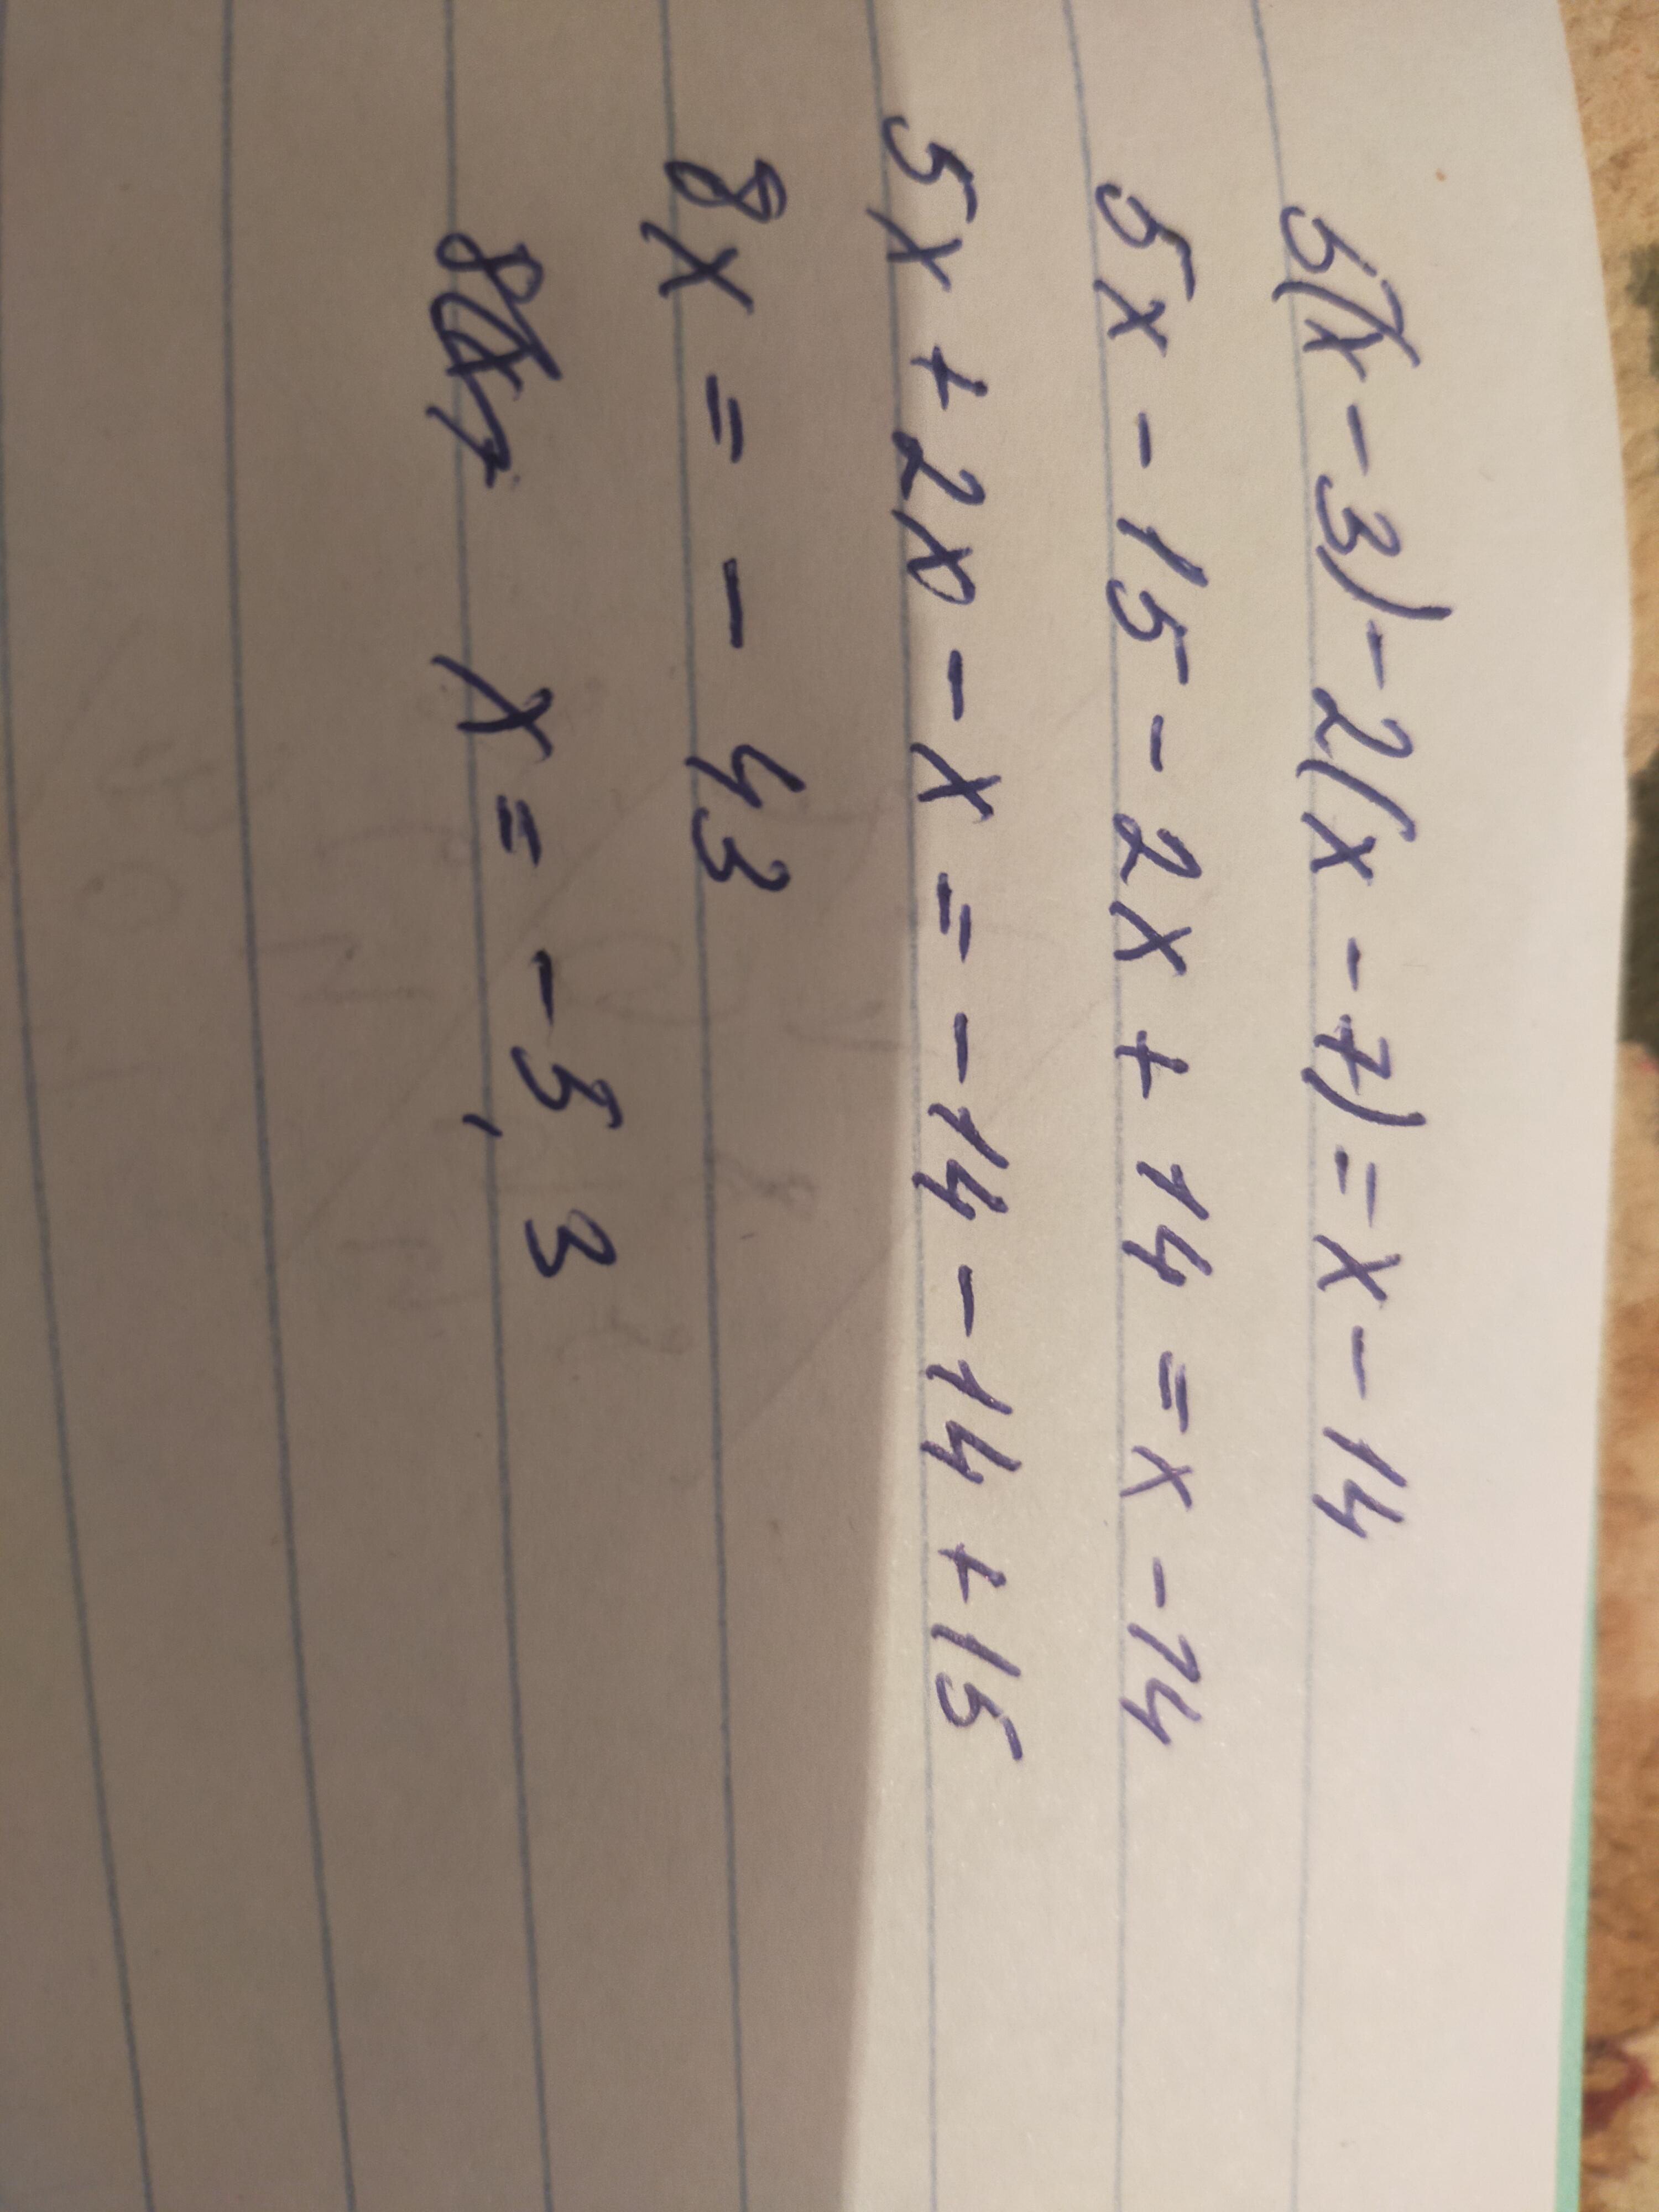 5(x - 3) - 2(x - 7) = x - 14
5x - 15 - 2x + 14 = x - 14
5x + 2x - x = - 14 - 14 + 15
8x = - 43
x = - 5,3